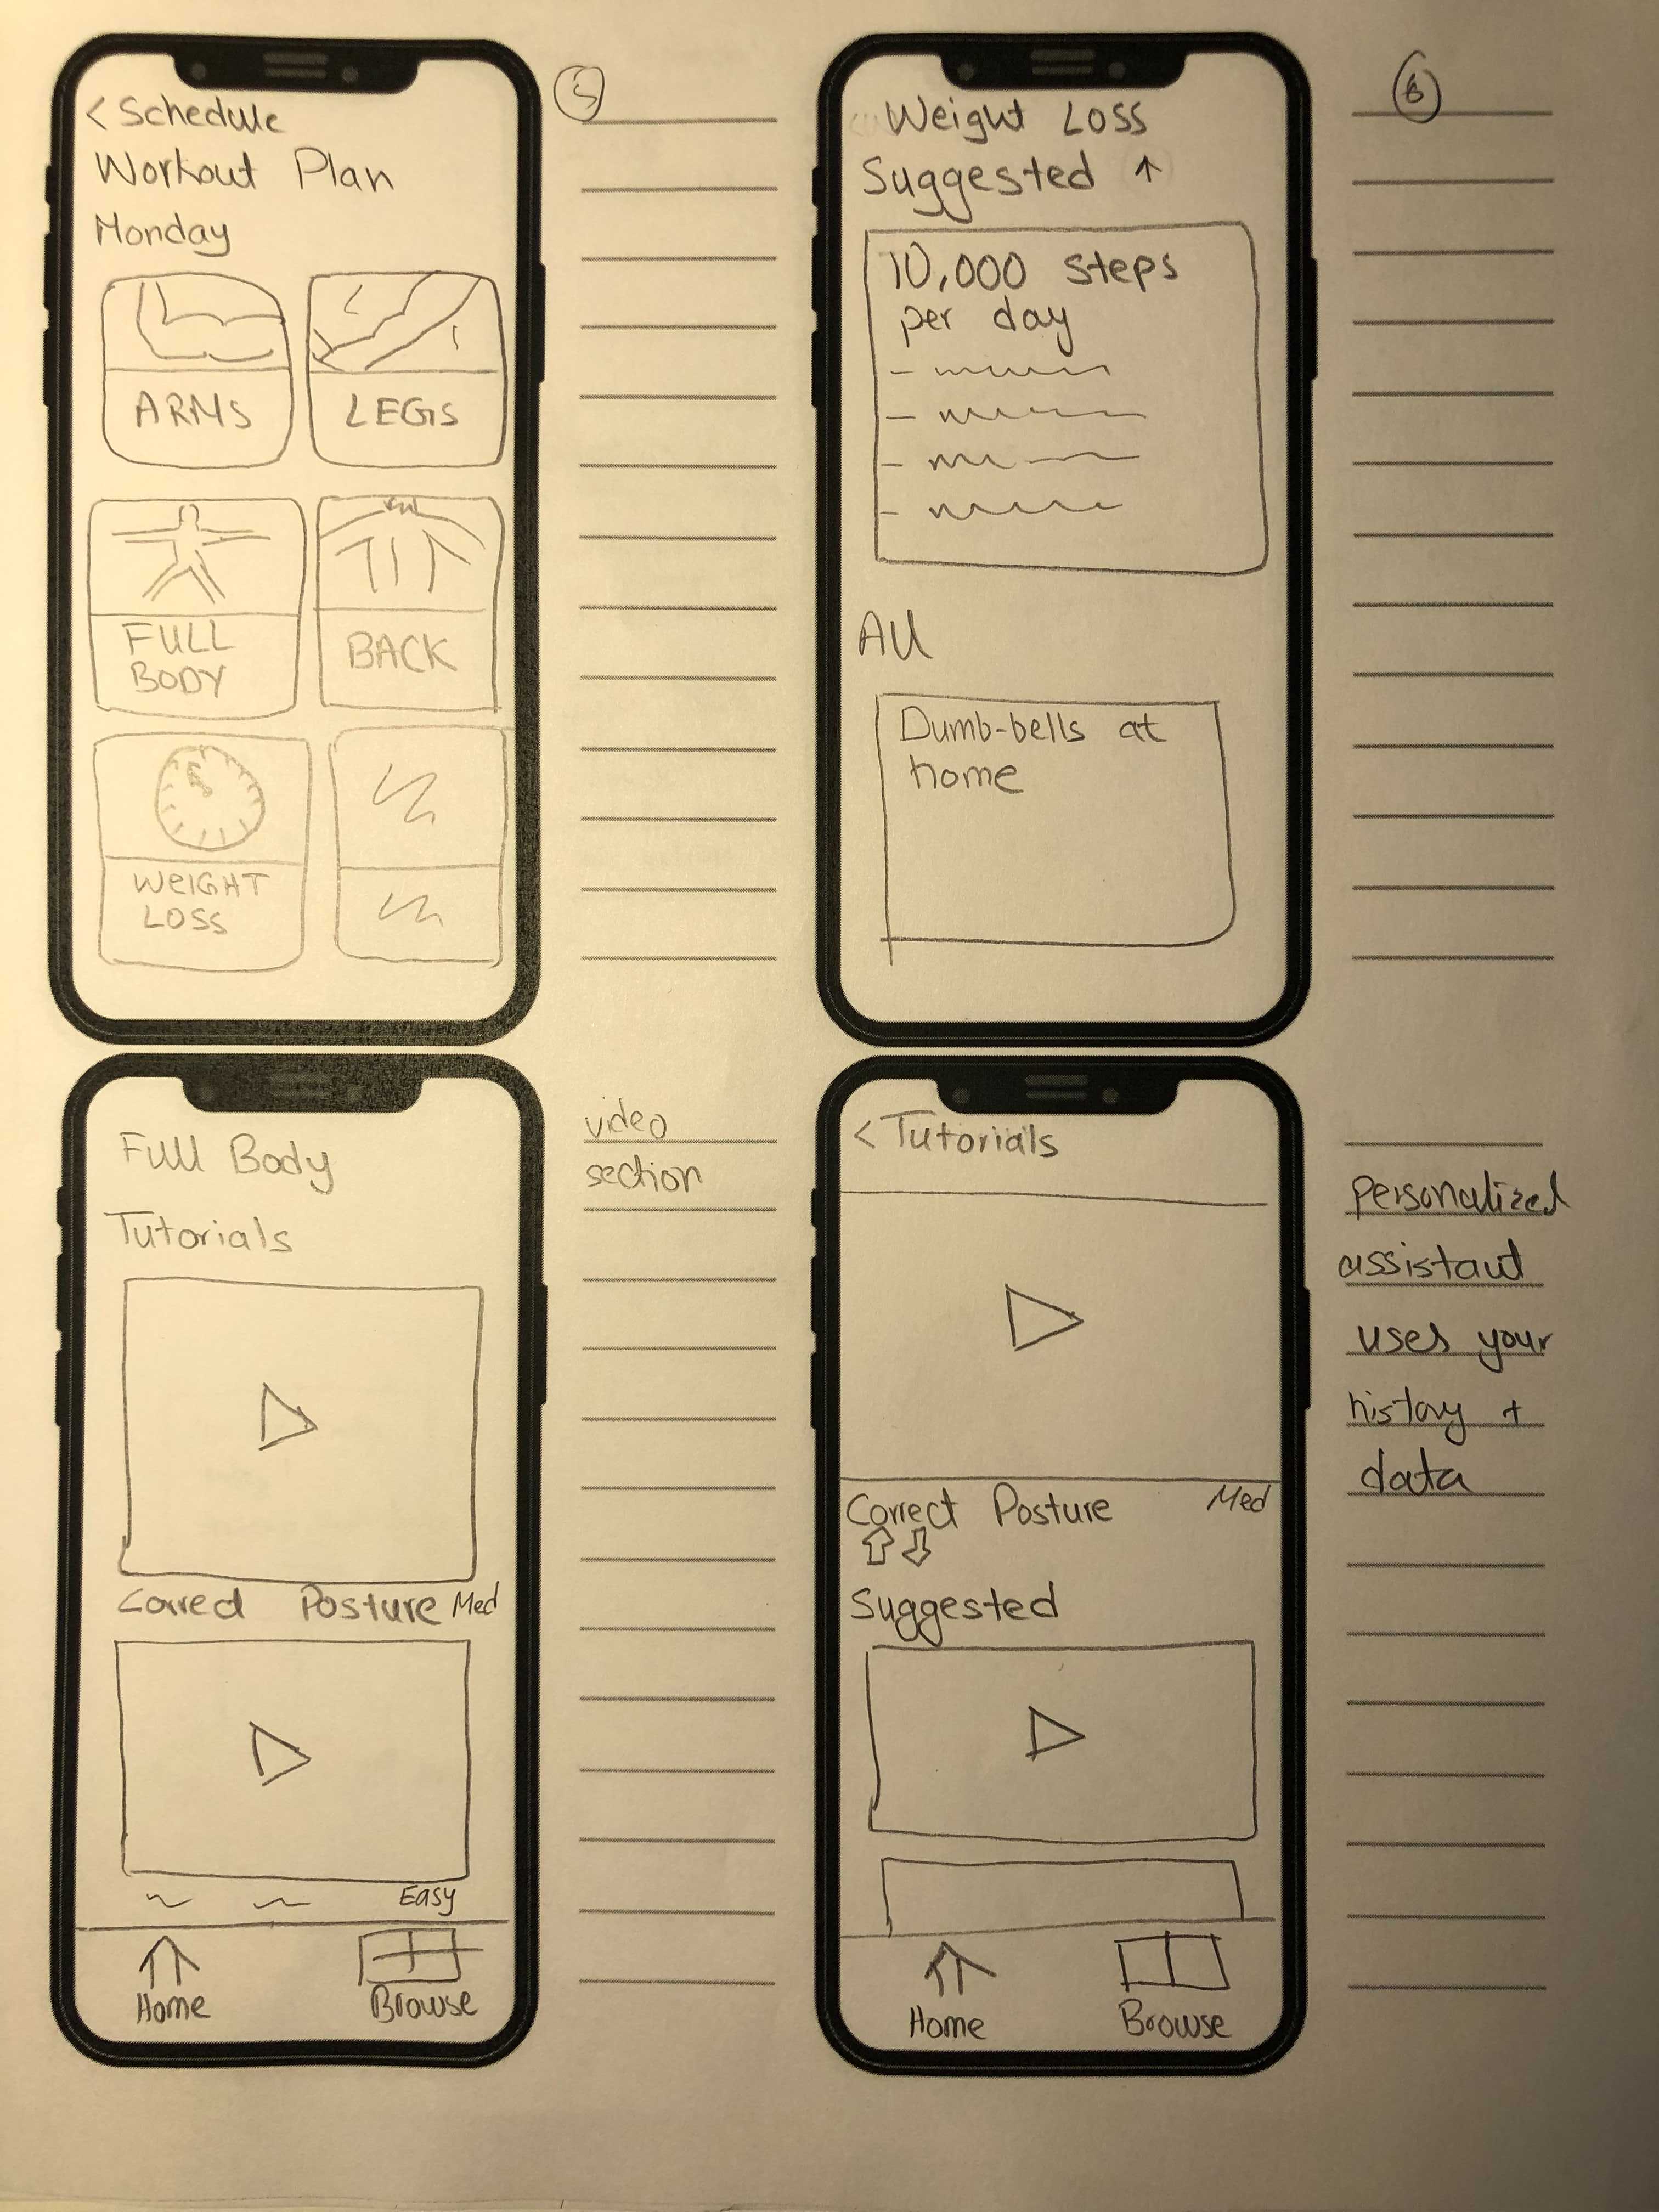 < Schedule
Workout Plan
Monday
ARMS
LEGS
FULL
BODY
BACK
WEIGHT
LOSS
5
Weight Loss
Suggested ↑
10,000 steps
per day
All
Dumb-bells at
home
6
Full Body
Tutorials
Correct Posture Med
Easy
Home
Browse
video
section
< Tutorials
Correct Posture Med
Suggested
Home
Browse
personalized
assistant
uses your
history +
data